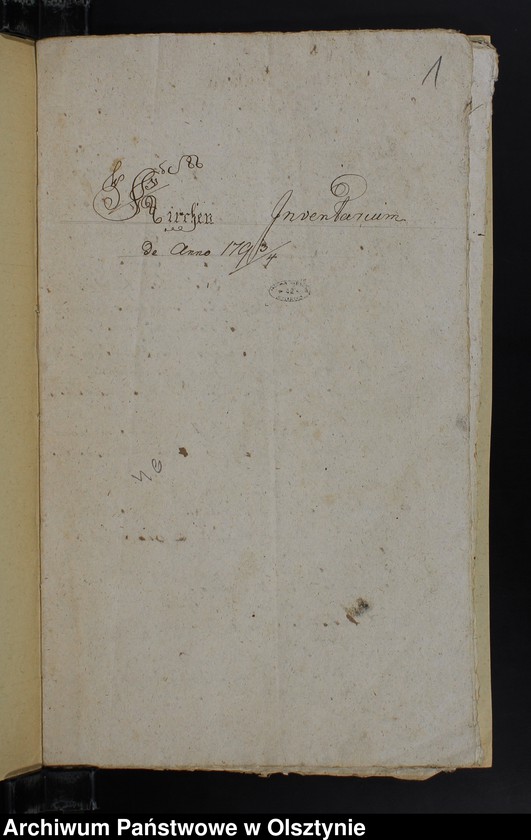 1
Kirchen Inventarium
de Anno 179 3/4
Archiwum Państwowe w Olsztynie